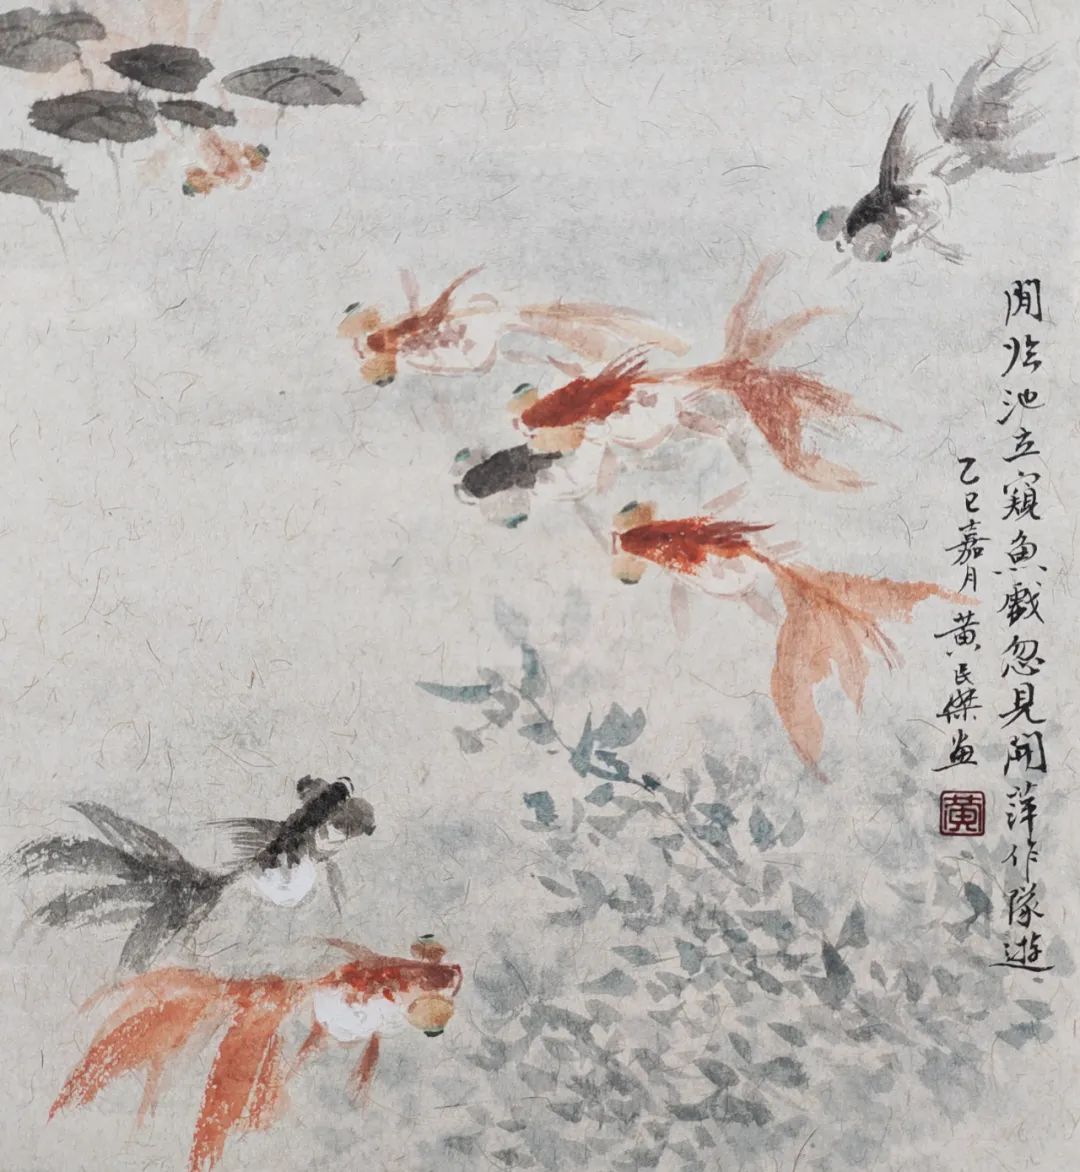 閒临池立窺魚戲忽見開萍作隊遊
乙巳嘉月黄民傑画
黄